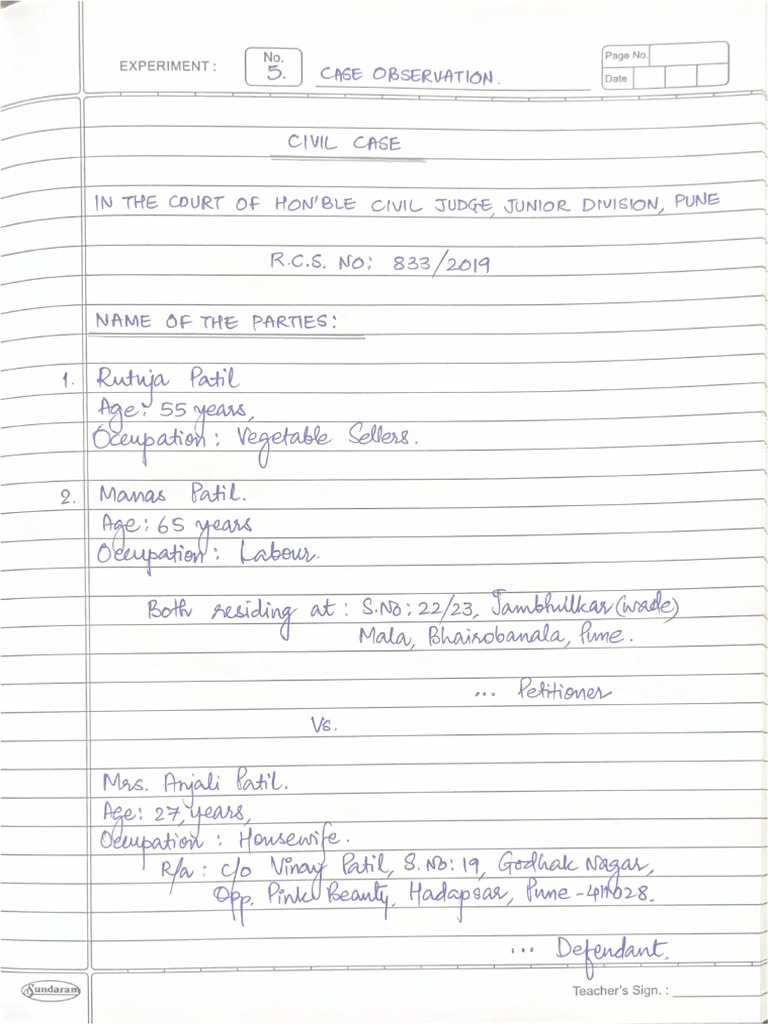 EXPERIMENT : No. 5. CASE OBSERVATION. Page No.
Date
CIVIL CASE
IN THE COURT OF HON'BLE CIVIL JUDGE, JUNIOR DIVISION, PUNE
R.C.S. NO: 833/2019
NAME OF THE PARTIES:
1. Rutuja Patil
Age: 55 years,
Occupation: Vegetable Sellers.
2. Manas Patil.
Age: 65 years
Occupation: Labour.
Both residing at: S.No: 22/23, Jambhulkar (wade)
Mala, Bhairobanala, Pune.
... Petitioner
Vs.
Mrs. Anjali Patil.
Age: 27, years,
Occupation : Housewife.
R/a : c/o Vinay Patil, S.No: 19, Godhak Nagar,
Opp. Pink Beauty, Hadapsar, Pune - 411028.
... Defendant.
Sundaram Teacher's Sign. :